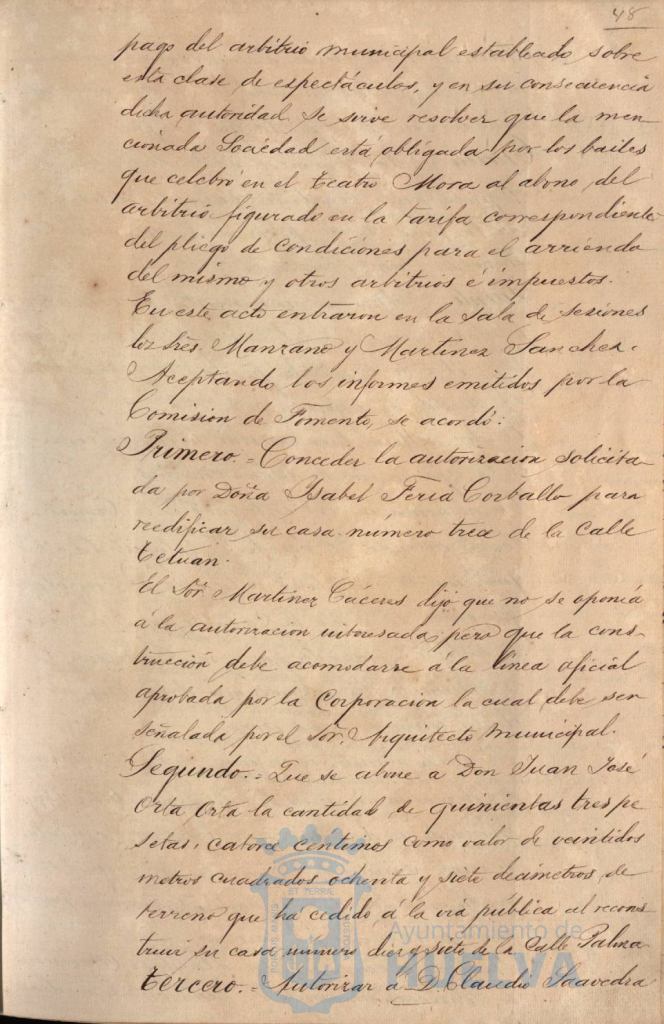 48
pago del arbitrio municipal establecido sobre
esta clase de espectáculos, y en su consecuencia
dicha autoridad se sirve resolver que la men-
cionada Sociedad está obligada por los bailes
que celebró en el teatro Mora al abono del
arbitrio figurado en la tarifa correspondiente
del pliego de condiciones para el arriendo
del mismo y otros arbitrios é impuestos.
En este acto entraron en la Sala de sesiones
los Sres. Manzano y Martinez Sanchez.
Aceptando los informes emitidos por la
Comision de Fomento, se acordó:
Primero.= Conceder la autorizacion solicita-
da por Doña Isabel Feria Corballo para
reedificar su casa número trece de la Calle
Tetuan.
El Sor. Martinez Cáceres dijo que no se oponia
á la autorizacion interesada, pero que la cons-
trucción debe acomodarse á la línea oficial
aprobada por la Corporacion la cual debe ser
señalada por el Sor. Arquitecto Municipal.
Segundo.= Que se abone á Don Juan José
Orta Orta la cantidad de quinientas tres pe-
setas, catorce centimos como valor de veintidos
metros cuadrados ochenta y siete decimetros de
terreno que ha cedido á la via pública al recons-
truir su casa número diez y siete de la Calle Palma
Tercero.= Autorizar á D. Claudio Saavedra
Ayuntamiento de
HUELVA